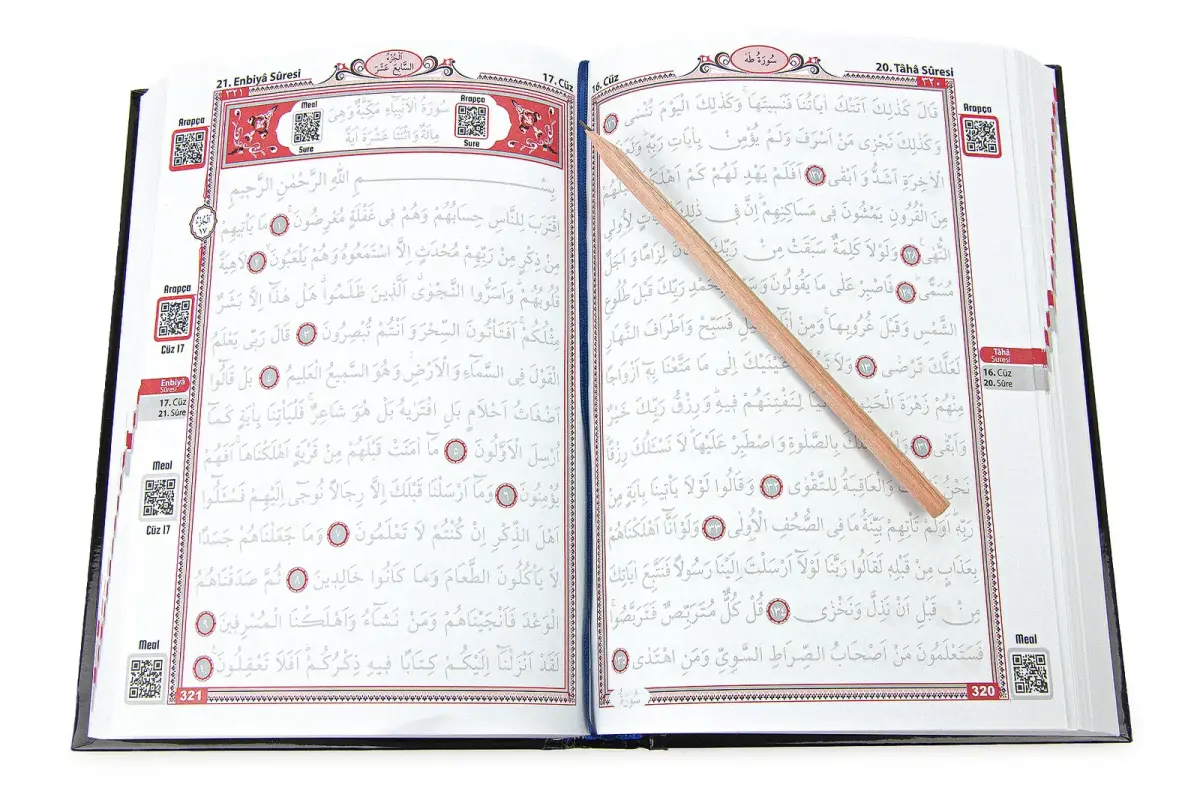 16. Cüz
سُورَةُ طٰهٰ
20. Tâhâ Sûresi
٣٢٠
Arapça
قَالَ كَذٰلِكَ اَتَتْكَ اٰيَاتُنَا فَنَسِيتَهَاۚ وَكَذٰلِكَ الْيَوْمَ تُنْسٰى
وَكَذٰلِكَ نَجْزِى مَنْ اَسْرَفَ وَلَمْ يُؤْمِنْ بِاٰيَاتِ رَبِّهِۜ
الْاٰخِرَةِ اَشَدُّ وَاَبْقٰى ١٢٧ اَفَلَمْ يَهْدِ لَهُمْ كَمْ
مِنَ الْقُرُونِ يَمْشُونَ فِى مَسَاكِنِهِمْۜ اِنَّ فِى ذٰلِكَ لِاُولِى
النُّهٰى ١٢٨ وَلَوْلَا كَلِمَةٌ سَبَقَتْ مِنْ رَبِّكَ لِزَامًا وَاَجَلٌ
مُسَمًّى ١٢٩ فَاصْبِرْ عَلٰى مَا يَقُولُونَ رَبِّكَ قَبْلَ طُلُوعِ
الشَّمْسِ وَقَبْلَ غُرُوبِهَاۚ وَمِنْ فَسَبِّحْ وَاَطْرَافَ النَّهَارِ
لَعَلَّكَ تَرْضٰى ١٣٠ وَلَا اِلٰى مَا مَتَّعْنَا بِهِٓ اَزْوَاجًا
مِنْهُمْ زَهْرَةَ لِنَفْتِنَهُمْ فِيهِۜ وَرِزْقُ رَبِّكَ خَيْرٌ
وَاَبْقٰى ١٣١ بِالصَّلٰوةِ وَاصْطَبِرْ عَلَيْهَاۜ لَا نَسْـَٔلُكَ رِزْقًاۜ
نَحْنُ وَالْعَاقِبَةُ لِلتَّقْوٰى ١٣٢ وَقَالُوا لَوْلَا يَأْتِينَا بِاٰيَةٍ مِنْ
رَبِّهِۜ اَوَلَمْ تَأْتِهِمْ بَيِّنَةُ مَا فِى الصُّحُفِ الْاُولٰى ١٣٣ وَلَوْ اَنَّٓا اَهْلَكْنَاهُمْ
بِعَذَابٍ مِنْ قَبْلِهِ لَقَالُوا رَبَّنَا لَوْلَٓا اَرْسَلْتَ اِلَيْنَا رَسُولًا فَنَتَّبِعَ اٰيَاتِكَ
مِنْ قَبْلِ اَنْ نَذِلَّ وَنَخْزٰى ١٣٤ قُلْ كُلٌّ مُتَرَبِّصٌ فَتَرَبَّصُواۚ
فَسَتَعْلَمُونَ مَنْ اَصْحَابُ الصِّرَاطِ السَّوِىِّ وَمَنِ اهْتَدٰى ١٣٥
Tâhâ
Suresi
16. Cüz
20. Sûre
Meal
320
سُورَةُ
21. Enbiyâ Sûresi
اَلْجُزْءُ
السَّابِعَ عَشَرَ
17. Cüz
٣٢١
Arapça
Sure
سُورَةُ الْاَنْبِيَاءِ مَكِّيَّةٌ وَهِىَ
مِائَةٌ وَاثْنَتَا عَشْرَةَ اٰيَةً
Meal
Sure
Arapça
بِسْمِ اللّٰهِ الرَّحْمٰنِ الرَّحِيمِ
اِقْتَرَبَ لِلنَّاسِ حِسَابُهُمْ وَهُمْ فِى غَفْلَةٍ مُعْرِضُونَۚ ١ مَا يَأْتِيهِمْ
مِنْ ذِكْرٍ مِنْ رَبِّهِمْ مُحْدَثٍ اِلَّا اسْتَمَعُوهُ وَهُمْ يَلْعَبُونَۙ ٢ لَاهِيَةً
قُلُوبُهُمْۜ وَاَسَرُّوا النَّجْوٰىۗ اَلَّذِينَ ظَلَمُواۗ هَلْ هٰذَٓا اِلَّا بَشَرٌ
مِثْلُكُمْۚ اَفَتَأْتُونَ السِّحْرَ وَاَنْتُمْ تُبْصِرُونَ ٣ قَالَ رَبِّى يَعْلَمُ
الْقَوْلَ فِى السَّمَٓاءِ وَالْاَرْضِۘ وَهُوَ السَّمِيعُ الْعَلِيمُ ٤ بَلْ قَالُٓوا
اَضْغَاثُ اَحْلَامٍ بَلِ افْتَرٰيهُ بَلْ هُوَ شَاعِرٌۚ فَلْيَأْتِنَا بِاٰيَةٍ كَمَٓا
اُرْسِلَ الْاَوَّلُونَ ٥ مَٓا اٰمَنَتْ قَبْلَهُمْ مِنْ قَرْيَةٍ اَهْلَكْنَاهَاۚ اَفَهُمْ
يُؤْمِنُونَ ٦ وَمَٓا اَرْسَلْنَا قَبْلَكَ اِلَّا رِجَالًا نُوحِٓى اِلَيْهِمْ فَسْـَٔلُٓوا
اَهْلَ الذِّكْرِ اِنْ كُنْتُمْ لَا تَعْلَمُونَ ٧ وَمَا جَعَلْنَاهُمْ جَسَدًا
لَا يَأْكُلُونَ الطَّعَامَ وَمَا كَانُوا خَالِدِينَ ٨ ثُمَّ صَدَقْنَاهُمُ
الْوَعْدَ فَاَنْجَيْنَاهُمْ وَمَنْ نَشَٓاءُ وَاَهْلَكْنَا الْمُسْرِفِينَ ٩
لَقَدْ اَنْزَلْنَٓا اِلَيْكُمْ كِتَابًا فِيهِ ذِكْرُكُمْۜ اَفَلَا تَعْقِلُونَ۟ ١٠
اَلْجُزْءُ
١٧
Arapça
Cüz 17
Enbiyâ
Sûresi
17. Cüz
21. Sûre
Meal
Cüz 17
Meal
321